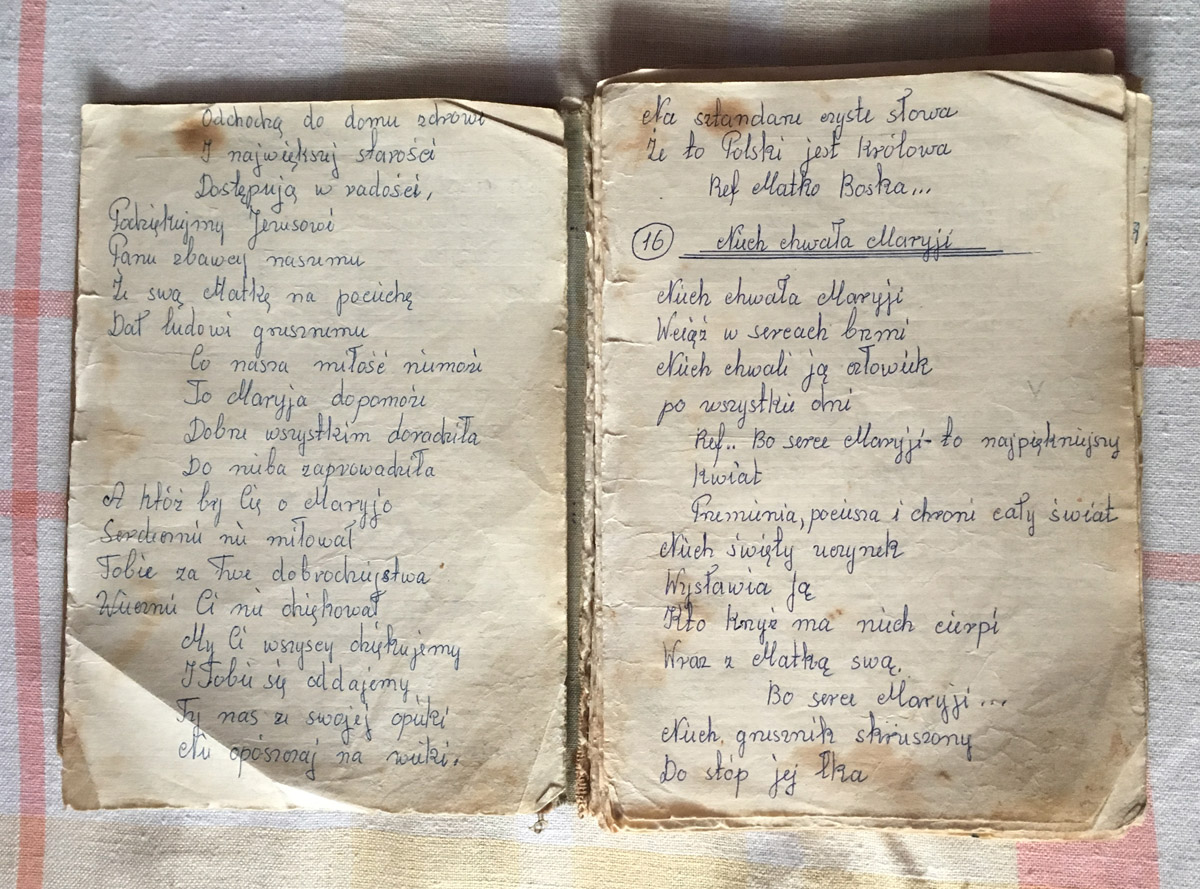 Odchodzą do domu zdrowi
I największej starości
Dostępują w radości,
Podziękujmy Jezusowi
Panu zbawcy naszemu
Że swą Matkę na pociechę
Dał ludowi grzesznemu
Co nasza miłość niemoże
To Maryja dopomoże
Dobrze wszystkim doradziła
Do nieba zaprowadziła
A któż by Cię o Maryjo
Serdecznie nie miłował
Tobie za Twe dobrodziejstwa
Wiernie Ci nie dziękował
My Ci wszyscy dziękujemy
I Tobie się oddajemy
Ty nas ze swojej opieki
Nie opószczaj na wieki.
Na sztandarze czyste słowa
Że to Polski jest Królowa
Ref Matko Boska...
16 Niech chwała Maryji
Niech chwała Maryji
Wciąż w sercach brzmi
Niech chwali ją człowiek
po wszystkie dni
Ref.. Bo serce Maryji - to najpiękniejszy
kwiat
Przemienia, pociesza i chroni cały świat
Niech święty uczynek
Wysławia ją
Kto krzyż ma niech cierpi
Wraz z Matką swą.
Bo serce Maryji...
Niech grzesznik skruszony
Do stóp jej łka